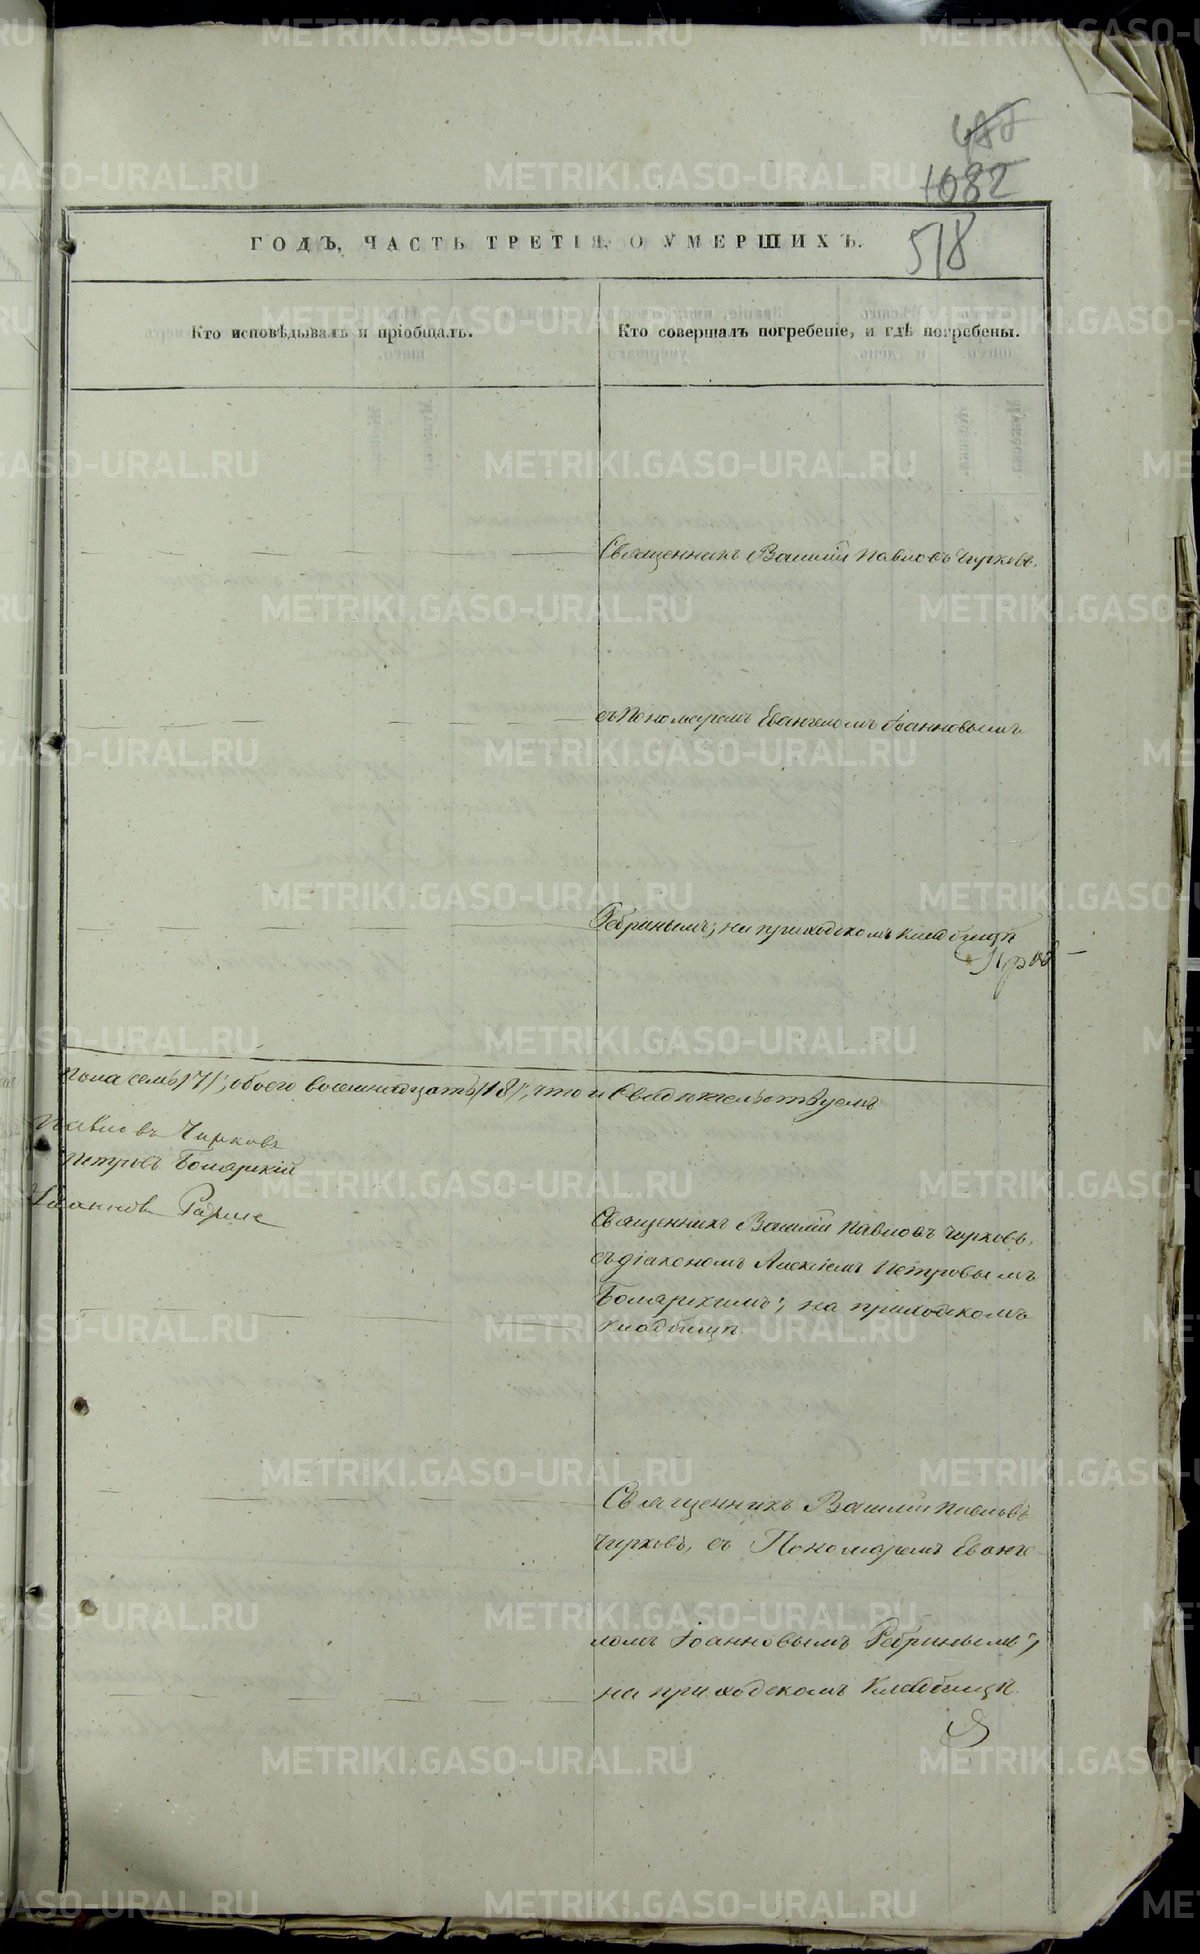 1082
ГОДЪ, ЧАСТЬ ТРЕТІЯ, О УМЕРШИХЪ.
518
Кто исповѣдывалъ и пріобщалъ.
Кто совершалъ погребеніе, и гдѣ погребены.
Священникъ Василій Павловъ Чирковъ,
съ Пономаремъ Евангеломъ Іоанновымъ
Ребринымъ; на приходскомъ кладбищѣ
пола семь /7/, обоего восемнадцать /18/, что и свидѣтельствуемъ
Павловъ Чирковъ
Петровъ Боярскій
Іоанновъ
Священникъ Василій Павловъ Чирковъ,
съ діакономъ Алексіемъ Петровымъ
на приходскомъ
кладбищѣ
Священникъ Василій Павловъ
Чирковъ, съ Пономаремъ Еванге
ломъ Іоанновымъ Ребринымъ;
на приходскомъ кладбищѣ
METRIKI.GASO-URAL.RU